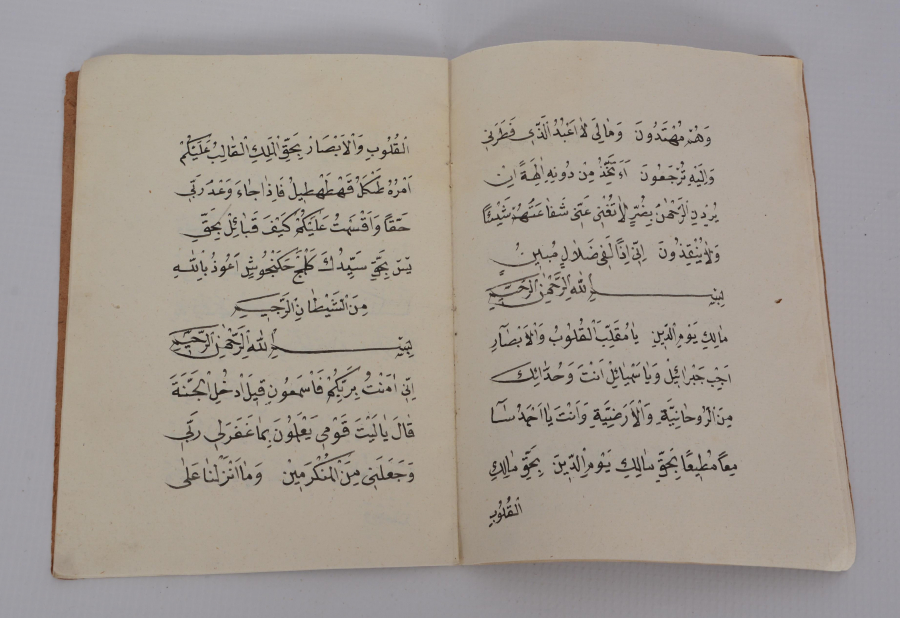 وَهُمْ مُهْتَدُونَ وَمَالِىَ لَا اَعْبُدُ الَّذِى فَطَرَنِى
وَاِلَيْهِ تُرْجَعُونَ ءَاَتَّخِذُ مِنْ دُونِهِ اٰلِهَةً اِنْ
يُرِدْنِ الرَّحْمٰنُ بِضُرٍّ لَا تُغْنِ عَنِّى شَفَاعَتُهُمْ شَيْئًا
وَلَا يُنْقِذُونَ اِنِّى اِذًا لَفِى ضَلَالٍ مُبِينٍ
بِسْمِ اللهِ الرَّحْمٰنِ الرَّحِيمِ
مَالِكِ يَوْمِ الدِّينِ يَا مُقَلِّبَ الْقُلُوبِ وَالْاَبْصَارِ
اَجِبْ جَبْرَائِيلُ وَيَا سَمْيَائِيلُ اَنْتَ وَخُدَّامُكَ
مِنَ الرُّوحَانِيَّةِ وَالْاَرْضِيَّةِ وَاَنْتَ يَا اَحْمَدُ سَا
مِعاً مُطِيعًا بِحَقِّ مَالِكِ يَوْمِ الدِّينَ بِحَقِّ مَالِكِ
الْقُلُوبِ
الْقُلُوبِ وَالْاَبْصَارِ بِحَقِّ الْمَلِكِ الْغَالِبُ عَلَيْكُمْ
اَمْرُهُ فَاِذَا جَاءَ وَعْدُ رَبِّى
حَقًّا وَاَقْسَمْتُ عَلَيْكُمْ بِحَقِّ
يٰسٓ بِحَقِّ اَعُوذُ بِاللهِ
مِنَ الشَّيْطَانِ الرَّجِيمِ
بِسْمِ اللهِ الرَّحْمٰنِ الرَّحِيمِ
اِنِّى اٰمَنْتُ بِرَبِّكُمْ فَاسْمَعُونِ قِيلَ ادْخُلِ الْجَنَّةَ
قَالَ يَا لَيْتَ قَوْمِى يَعْلَمُونَ بِمَا غَفَرَلِى رَبِّى
وَجَعَلَنِى مِنَ الْمُكْرَمِينَ وَمَا اَنْزَلْنَا عَلٰى